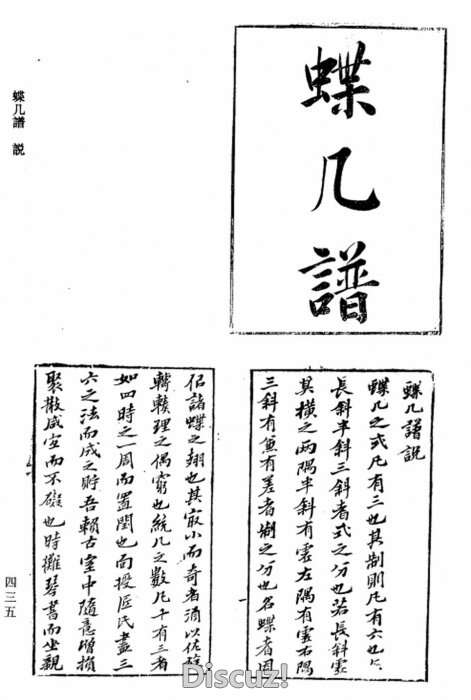 蝶几譜
蝶几譜説
蝶几之式凡有三也其制則凡有六也
長斜半斜三斜者式之分也若長斜虛
其橫之兩隅半斜有虛左隅有虛右隅
三斜有魚有差者制之分也名蝶者因
佀諸蝶之翅也其最小而奇者酒以佐
理之偶窮也統几之數凡十有三者
如四時之一周而置閏也而授匠氏畫三
六之法而成之貯吾賴古室中隨意增損
聚散咸宜而不礙也時攤琴書而坐親
蝶几譜 説
四三五
Discuz!